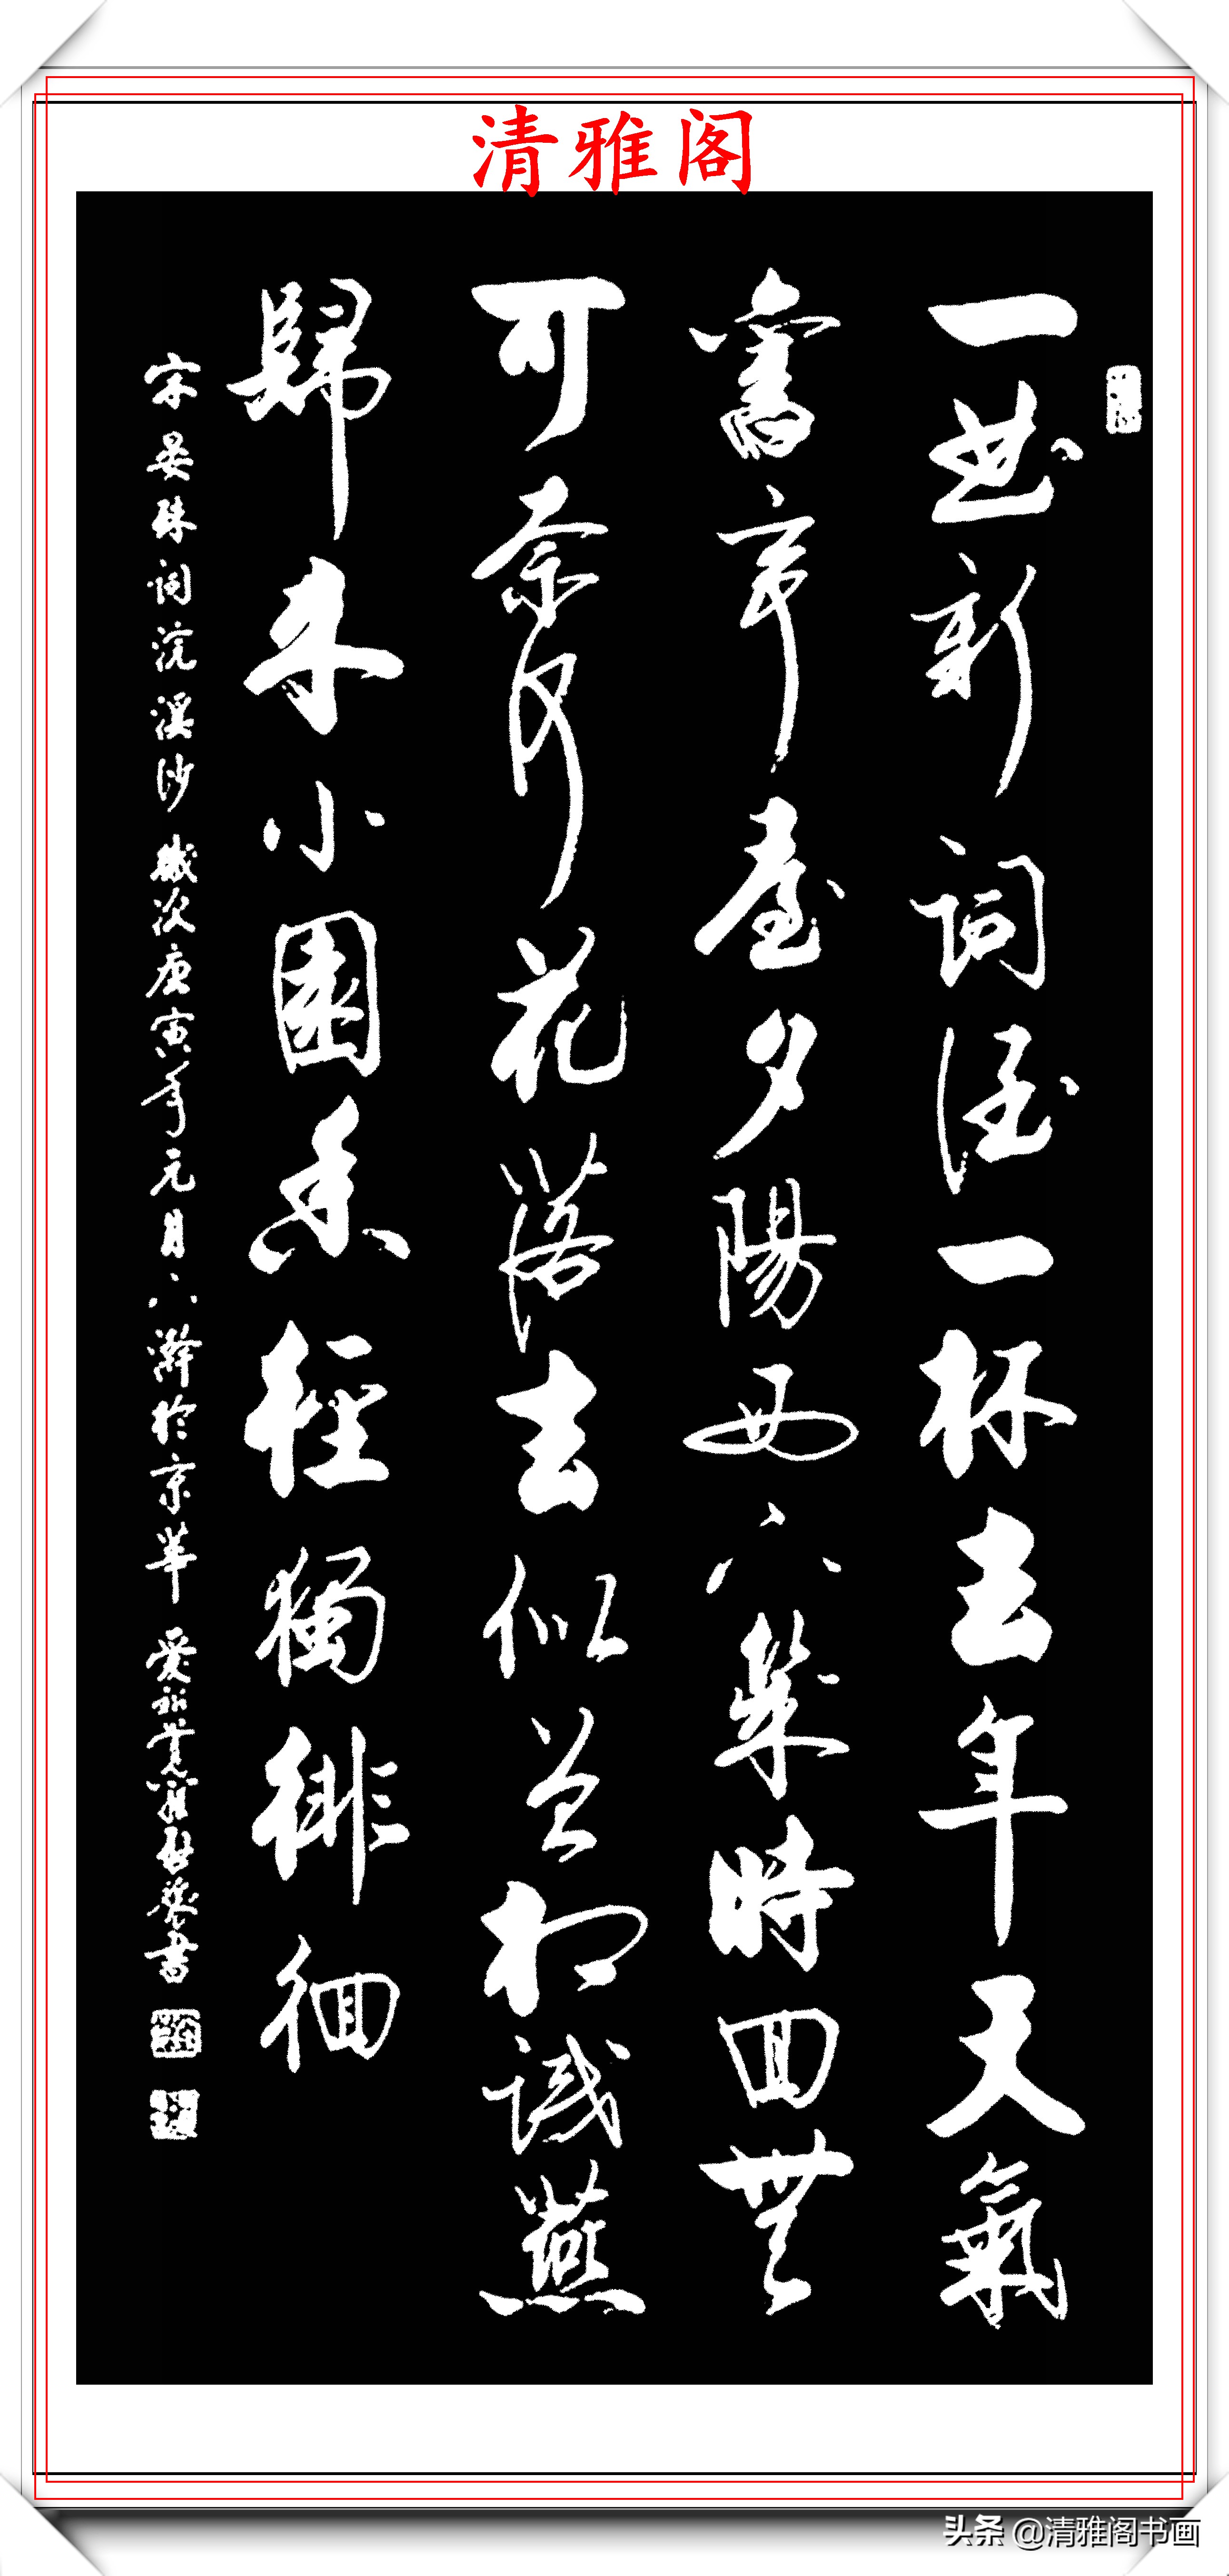 清雅阁
一曲新詞酒一杯去年天氣
舊亭臺夕陽西下幾時回無
可奈何花落去似曾相識燕
歸來小園香徑獨徘徊
宋晏殊詞浣溪沙歲次庚寅年元月下澣於京華愛新覺羅啟驤書
头条 @清雅阁书画